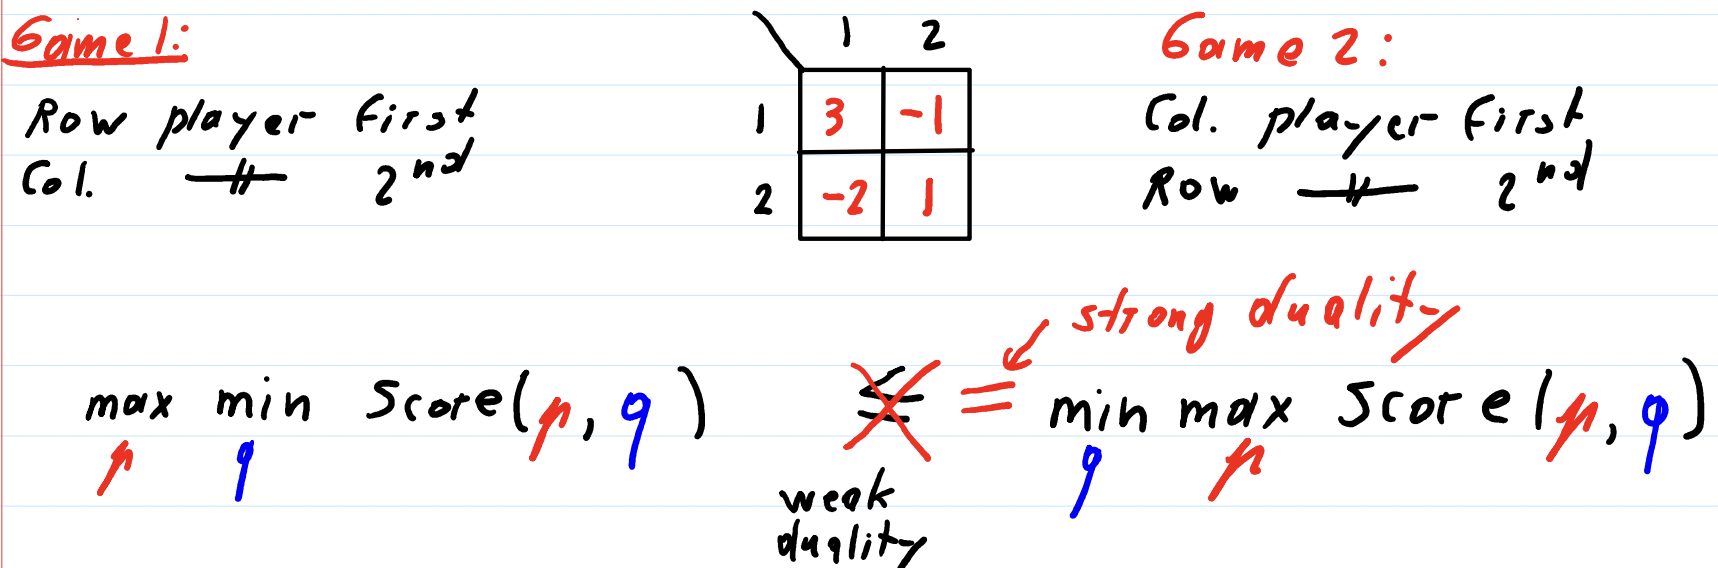 Game 1:
Row player first
Col. —//— 2nd
1 2
1 3 -1
2 -2 1
Game 2:
Col. player first
Row —//— 2nd
strong duality
max min Score(p, q) ≤ = min max Score(p, q)
p q q p
weak
duality